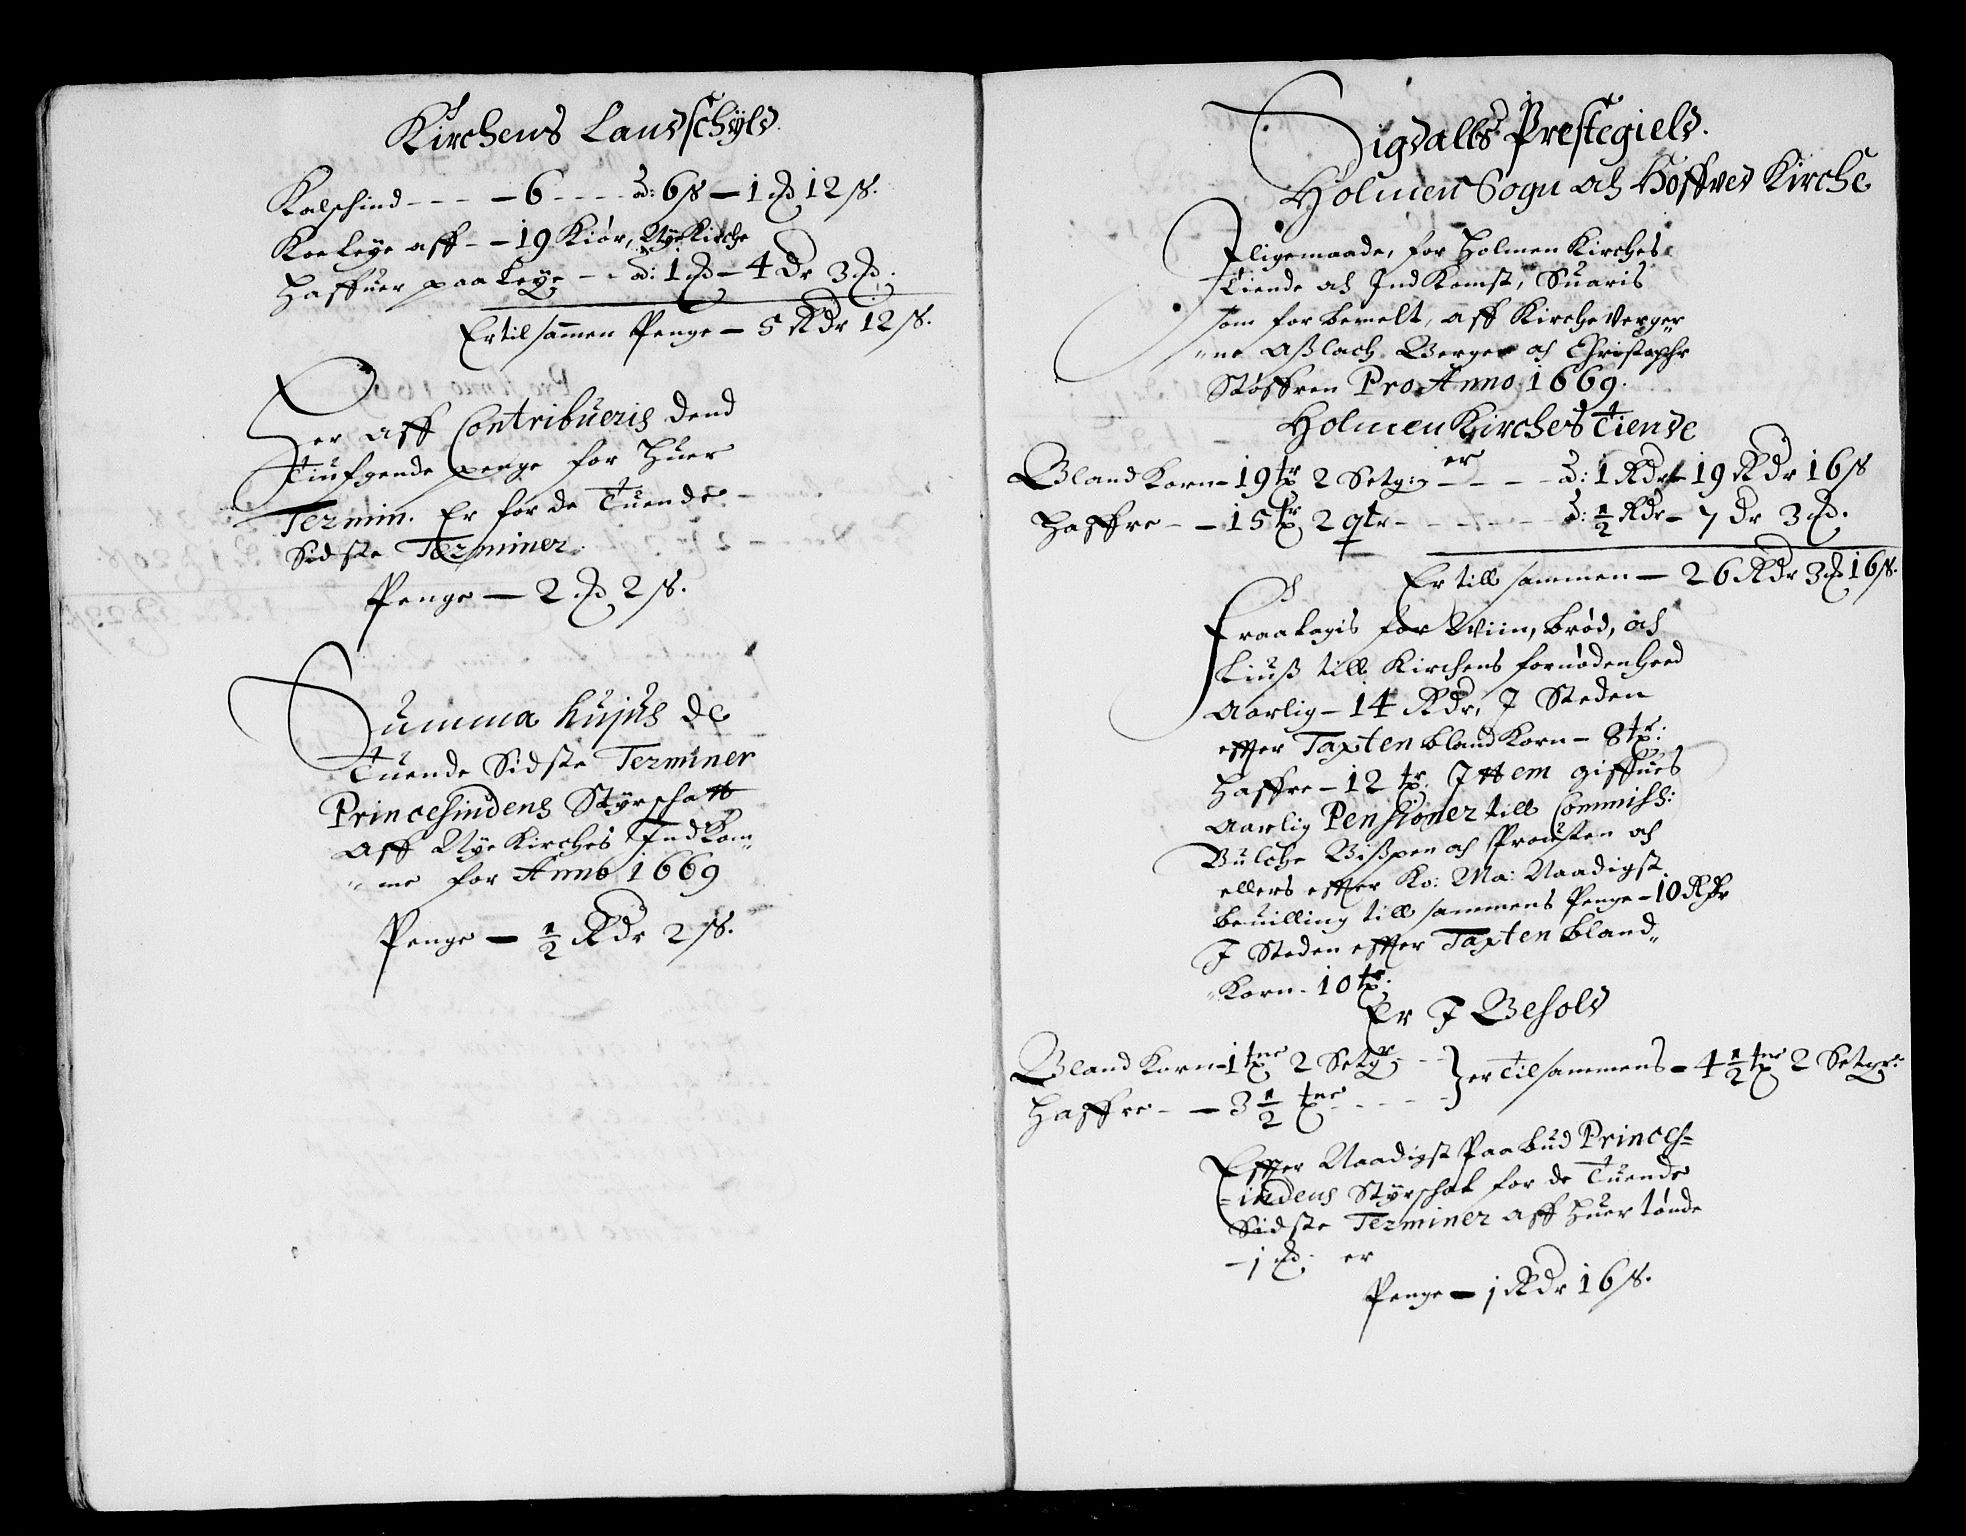 Kirchens Landschÿld.
Kalfschind - - - - 6 - - - - ad: 6 s - 1 md 12 s.
Koe Leÿe aff - - 19 Kiør, Nÿe Kirche
Haffuer paa Leÿe - - ad: 1 md - 4 dr 3 md:
Er til sammen Penge - 5 Rdr 12 s.
Her aff Contribueris dend
Tiufgende penge for huer
Termin. Er for de Tuende
Sidste Terminer.
Penge - 2 md 2 s.
Summa hujus de
Tuende Sidste Terminer
Princesindens Stÿrschatt
aff Nÿe Kirches Indkom„
„me for Anno 1669
Penge - ½ Rdr 2 s.
Sigdalls Prestegield.
Holmen Sogn och Hoffved Kirche
Iligemaade, for Holmen Kirches
Tiende och Ind Komst, Suaris
som for bemelt, aff Kirche Verger„
„ne Aßlach Berger och Christopher
Støffren Pro Anno 1669.
Holmen Kirches Tiende
Bland Korn - 19 tr 2 Setg: er - - - - ad: 1 Rdr - 19 Rdr 16 s
Haffre - - 15 tr 2 qtr - - - - - - ad: ½ Rdr - 7 dr 3 md.
Er till sammen - 26 Rdr 3 md 16 s.
Fraatagis for Wiin, brød, och
Liuß till Kirchens fornødenheed
Aarlig - 14 Rdr, I Steden
effter Taxten bland Korn - 8 tr:
Haffre - 12 tr. Ittem giffues
Aarlig Pensioner till Commiss:
Bulche Bißpen och Prousten och
ellers effter Ko: Ma: Naadigst
beuilling till sammens Penge - 10 Rdr
I Steden effter Taxten bland„
„Korn - 10 tr:
Er I Behold
Bland Korn - 1 tne 2 Setgr - - } er tilsammens - 4 ½ tner 2 Setgr:
Haffre - - 3 ½ tner - - - -
Effter Naadigst Paabud Princes=
=indens Stÿrschat for de Tuende
Sidste Terminer aff huer tønde
- 1 md: er
Penge - 1 Rdr 16 s.